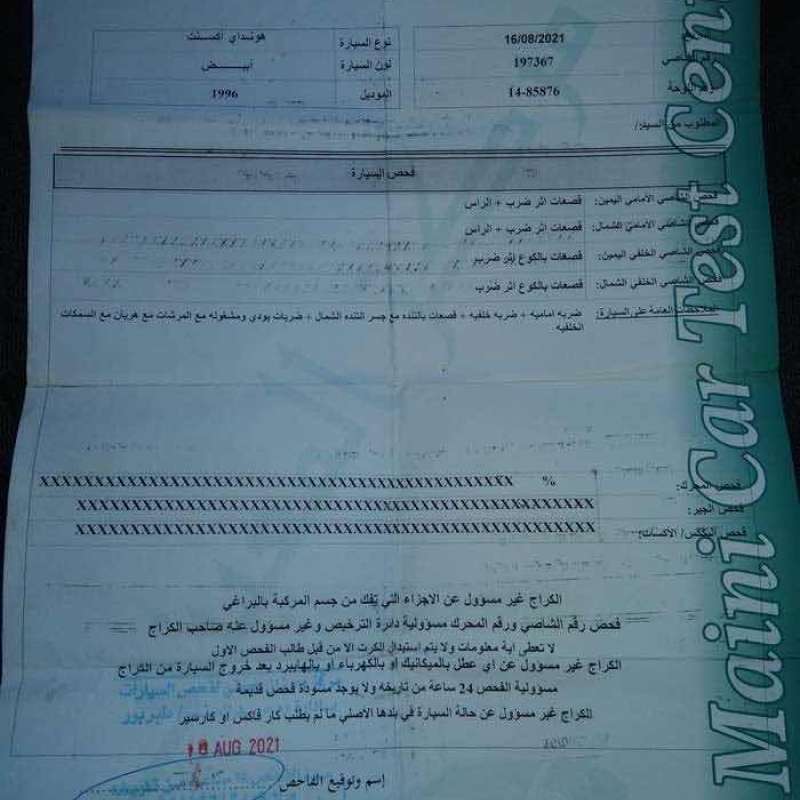 نوع السيارة هونداي أكسنت
لون السيارة أبيــــض
الموديل 1996
16/08/2021
197367
14-85876
فحص السيارة
قصعات اثر ضرب + الراس
الشاصي الأمامي الشمال: قصعات اثر ضرب + الراس
الشاصي الخلفي اليمين: قصعات بالكوع اثر ضرب
الشاصي الخلفي الشمال: قصعات بالكوع اثر ضرب
العامة على السيارة: ضربه اماميه + ضربه خلفيه + قصعات بالتنده مع جسر التنده الشمال + ضربات بودي ومشغوله مع المرشات مع هريان مع السمكات
الخلفيه
فحص المحرك: % XXXXXXXXXXXXXXXXXXXXXXXXXXXXXXXXXXXXXXXXX
فحص الجير: XXXXXXXXXXXXXXXXXXXXXXXXXXXXXXXXXXXXXXXXXXXXX
فحص البكس/ الأكسات: XXXXXXXXXXXXXXXXXXXXXXXXXXXXXXXXXXXXXXXXXXXXX
الكراج غير مسؤول عن الاجزاء التي يفك من جسم المركبة بالبراغي
فحص رقم الشاصي ورقم المحرك مسؤولية دائرة الترخيص وغير مسؤول عنه صاحب الكراج
لا تعطى اية معلومات ولا يتم استبدال الكرت الا من قبل طالب الفحص الاول
الكراج غير مسؤول عن اي عطل بالميكانيك او بالكهرباء او بالهايبرد بعد خروج السيارة من الكراج
مسؤولية الفحص 24 ساعة من تاريخه ولا يوجد مسودة فحص قديمة
الكراج غير مسؤول عن حالة السيارة في بلدها الاصلي ما لم يطلب كار فاكس او كارسير
AUG 2021
إسم وتوقيع الفاحص
Maini Car Test Cent